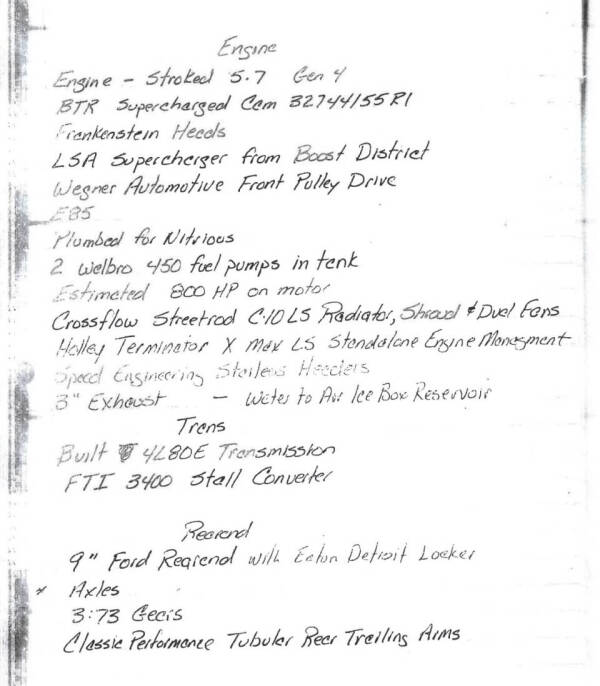 Engine
Engine - Stroked 5.7 Gen 4
BTR Supercharged Cam 32744155R1
Frankenstein Heads
LSA Supercharger from Boost District
Wegner Automotive Front Pulley Drive
E85
Plumbed for Nitrious
2 Welbro 450 fuel pumps in tank
Estimated 800 HP on motor
Crossflow Streetrod C-10 LS Radiator, Shroud & Duel Fans
Holley Terminator X Max LS Standalone Engine Managment
Speed Engineering Stailess Headers
3" Exhaust - Water to Air Ice Box Reservoir
Trans
Built 4L80E Transmission
FTI 3400 Stall Converter
Rearend
9" Ford Rearend with Eaton Detroit Locker
* Axles
3:73 Gears
Classic Performance Tubular Rear Trailing Arms